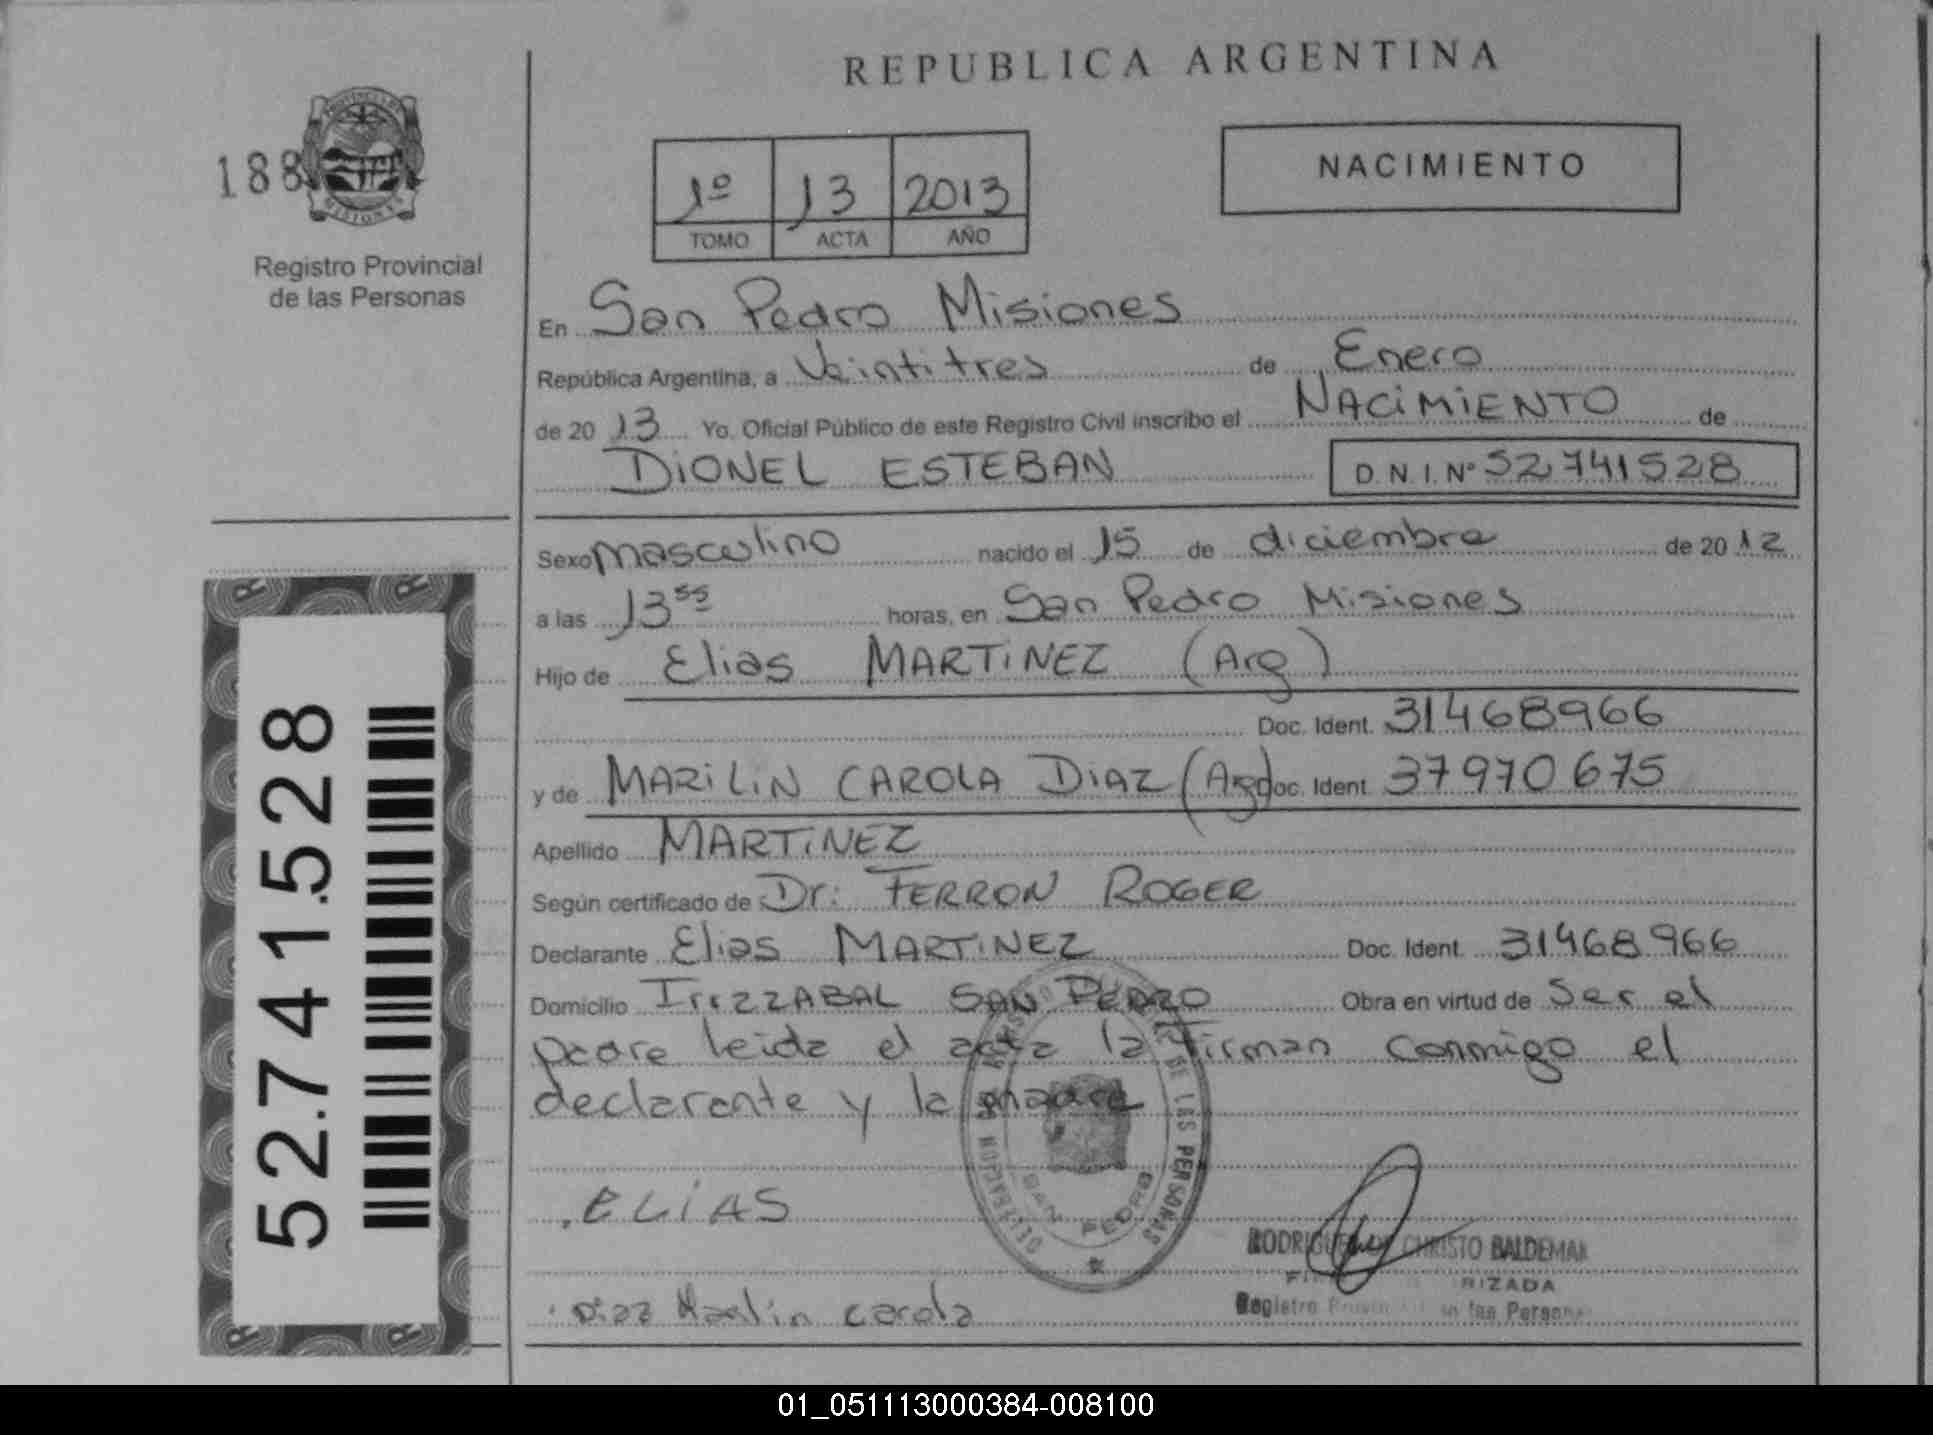 REPUBLICA ARGENTINA
188
PROVINCIA DE MISIONES
Registro Provincial
de las Personas
1º 13 2013
TOMO ACTA AÑO
NACIMIENTO
En San Pedro Misiones
República Argentina, a Veintitres de Enero
de 2013 Yo, Oficial Público de este Registro Civil inscribo el NACIMIENTO de
DIONEL ESTEBAN D.N.I. Nº 52.741528
Sexo masculino nacido el 15 de diciembre de 2012
a las 13 55 horas, en San Pedro Misiones
Hijo de Elias MARTINEZ (Arg)
Doc. Ident. 31468966
y de MARILIN CAROLA DIAZ (Arg) Doc. Ident. 37970675
Apellido MARTINEZ
Según certificado de Dr: FERRON ROGER
Declarante Elias MARTINEZ Doc. Ident. 31468966
Domicilio SAN PEDRO Obra en virtud de Ser el
padre leida el acta la Firman Conmigo el
declarante y la madre
DE LAS PERSONAS
SAN PEDRO
ELIAS
CHRISTO BALDEMAR
RIZADA
Registro las Persona
Diaz Marlin carola
52.741.528
01_051113000384-008100